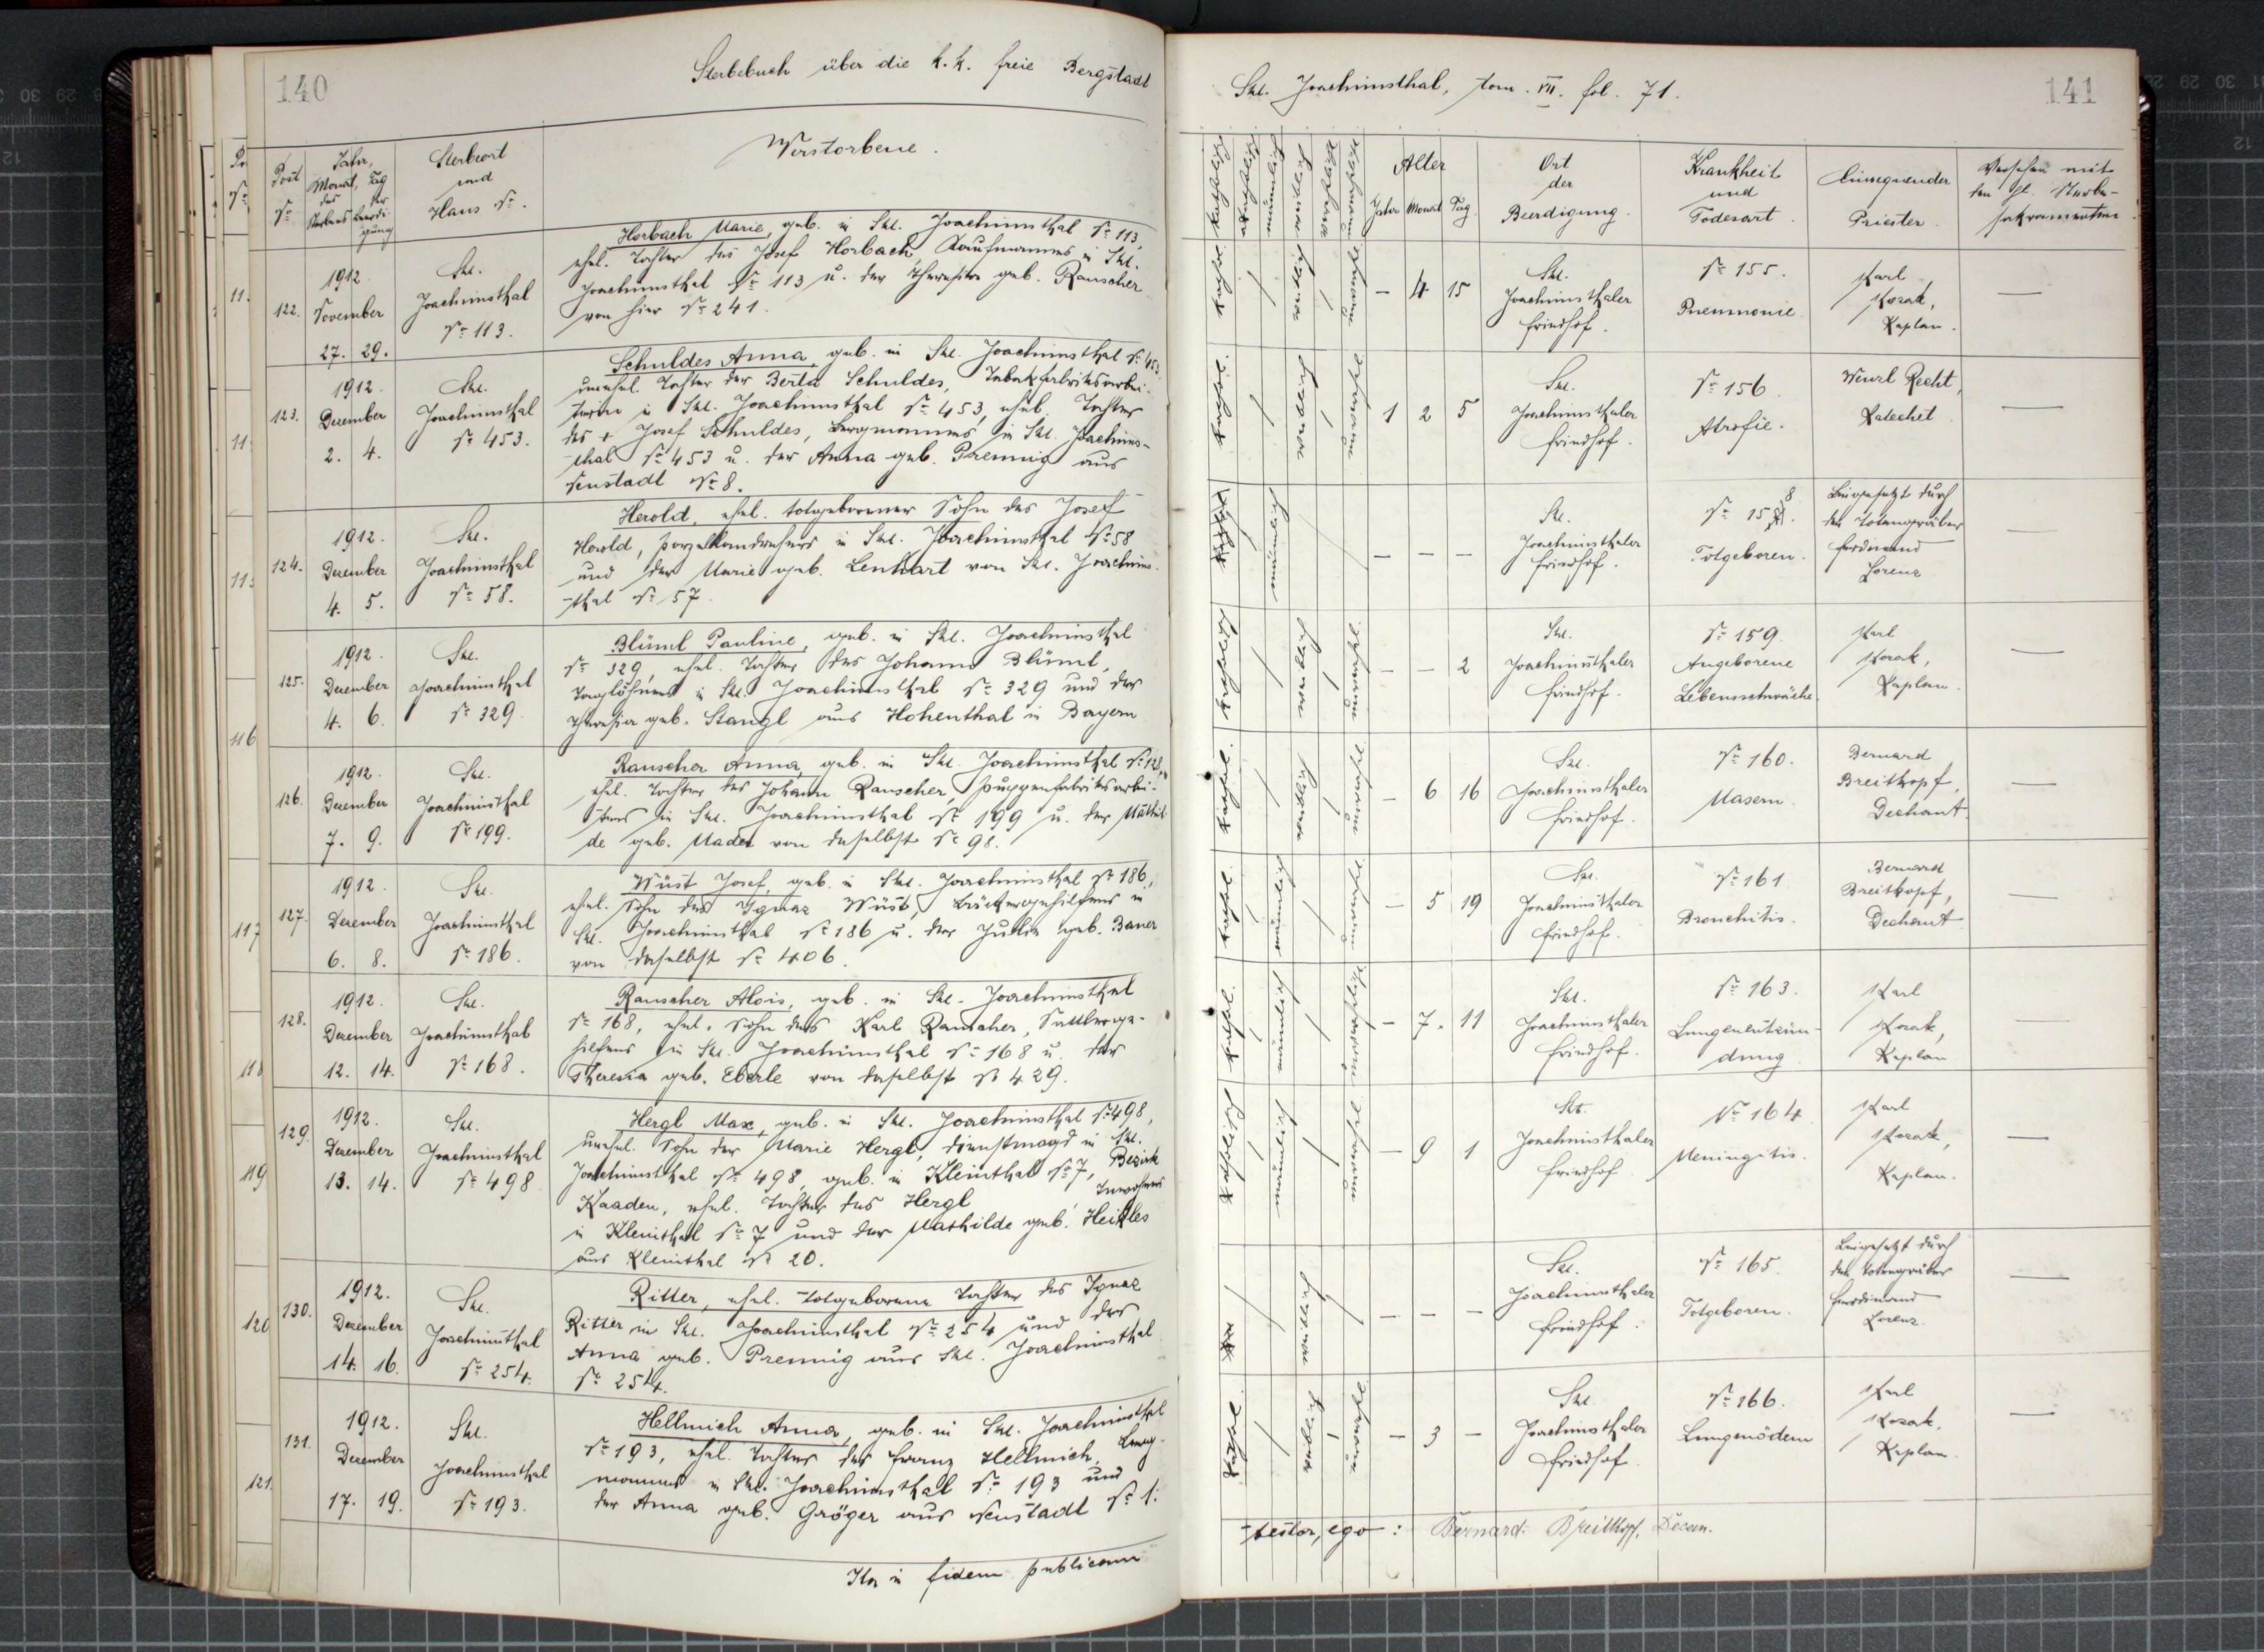 140
Sterbebuch über die k. k. freie Bergstadt
Post
Nr.
Jahr,
Monat, Tag
des
der
Sterbens
Beerdi-
gung
Sterbeort
und
Haus Nr.
Verstorbene.
122.
1912.
November
27. 29.
Skt.
Joachimsthal
Nr. 113.
Horbach Marie, geb. in Skt. Joachimsthal Nr. 113,
ehel. Tochter des Josef Horbach, Kaufmannes in Skt.
Joachimsthal Nr. 113 u. der Theresia geb. Rauscher
von hier Nr. 241.
123.
1912.
Dezember
2. 4.
Skt.
Joachimsthal
Nr. 453.
Schuldes Anna, geb. in Skt. Joachimsthal Nr. 453,
unehel. Tochter der Berta Schuldes, Tabakfabriksarbei-
terin in Skt. Joachimsthal Nr. 453, ehel. Tochter
des + Josef Schuldes, Bergmannes in Skt. Joachims-
thal Nr. 453 u. der Anna geb. Prennig aus
Neustadt Nr. 8.
124.
1912.
Dezember
4. 5.
Skt.
Joachimsthal
Nr. 58.
Herold, ehel. totgeborener Sohn des Josef
Herold, Porzellandrehers in Skt. Joachimsthal Nr. 58
und der Marie geb. Lenhart von Skt. Joachims-
thal Nr. 57.
125.
1912.
Dezember
4. 6.
Skt.
Joachimsthal
Nr. 329
Blüml Pauline, geb. in Skt. Joachimsthal
Nr. 329, ehel. Tochter des Johann Blüml,
Taglöhners in Skt. Joachimsthal Nr. 329 und der
Theresia geb. Stangl aus Hohenthal in Bayern
126.
1912.
Dezember
7. 9.
Skt.
Joachimsthal
Nr. 199.
Rauscher Anna, geb. in Skt. Joachimsthal
ehel. Tochter des Johann Rauscher, Puppenfabriksarbei-
ters in Skt. Joachimsthal Nr. 199 u. der Mathil-
de geb. Mader von daselbst Nr. 98.
127.
1912.
Dezember
6. 8.
Skt.
Joachimsthal
Nr. 186.
Wüst Josef, geb. in Skt. Joachimsthal Nr. 186,
ehel. Sohn des Ignaz Wüst, Bäckergehilfens in
Skt. Joachimsthal Nr. 186 u. der Julia geb. Bauer
von daselbst Nr. 406.
128.
1912.
Dezember
12. 14.
Skt.
Joachimsthal
Nr. 168.
Rauscher Alois, geb. in Skt. Joachimsthal
Nr. 168, ehel. Sohn des Karl Rauscher, Sattlerge-
hilfens in Skt. Joachimsthal Nr. 168 u. der
Theresia geb. Eberle von daselbst Nr. 429.
129.
1912.
Dezember
13. 14.
Skt.
Joachimsthal
Nr. 498
Hergl Max, geb. in Skt. Joachimsthal Nr. 498,
unehel. Sohn der Marie Hergl, Dienstmagd in Skt.
Joachimsthal Nr. 498, geb. in Kleinthal Nr. 7, Bezirk
Kaaden, ehel. Tochter des Hergl Inwohners
in Kleinthal Nr. 7 und der Mathilde geb.
aus Kleinthal Nr. 20.
130.
1912.
Dezember
14. 16.
Skt.
Joachimsthal
Nr. 254.
Ritter, ehel. totgeborene Tochter des Ignaz
Ritter in Skt. Joachimsthal Nr. 254 und der
Anna geb. Prennig aus Skt. Joachimsthal
Nr. 254.
131.
1912.
Dezember
17. 19.
Skt.
Joachimsthal
Nr. 193.
Hellmich Anna, geb. in Skt. Joachimsthal
Nr. 193, ehel. Tochter des Franz Hellmich, Berg-
mannes in Skt. Joachimsthal Nr. 193 und
der Anna geb. Gröger aus Neustadt Nr. 1.
Ita in fidem publicam
116
117
118
119
120
121.
Skt. Joachimsthal, tom. VII. fol. 71.
141
katholisch
männlich
weiblich
Alter
Jahr Monat Tag
Ort
der
Beerdigung.
Krankheit
und
Todesart.
Einsegnender
Priester.
Versehen mit
den hl. Sterbe-
sakramenten.
kathol.
weiblich
— 4 15
Skt.
Joachimsthaler
Friedhof.
Nr. 155.
Pneumonie
Karl
Kozak,
Kaplan.
—
kathol.
weiblich
1 2 5
Skt.
Joachimsthaler
Friedhof.
Nr. 156
Atrofie.
Wenzl Recht,
Katechet
—
männlich
— — —
Skt.
Joachimsthaler
Friedhof.
Nr. 158.
Totgeboren.
Beigesetzt durch
den Totengräber
Ferdinand
Lorenz
—
katholisch
weiblich
— — 2
Skt.
Joachimsthaler
Friedhof.
Nr. 159.
Angeborene
Lebensschwäche.
Karl
Kozak,
Kaplan.
—
kathol.
weiblich
— 6 16
Skt.
Joachimsthaler
Friedhof.
Nr. 160.
Masern.
Bernard
Breitkopf,
Dechant.
—
kathol.
männlich
— 5 19
Skt.
Joachimsthaler
Friedhof.
Nr. 161
Bronchitis.
Bernard
Breitkopf,
Dechant
—
kathol.
männlich
— 7. 11
Skt.
Joachimsthaler
Friedhof.
Nr. 163.
Lungenentzün-
dung
Karl
Kozak,
Kaplan
—
katholisch
männlich
— 9 1
Skt.
Joachimsthaler
Friedhof
Nr. 164
Meningitis.
Karl
Kozak,
Kaplan.
—
weiblich
— — —
Skt.
Joachimsthaler
Friedhof.
Nr. 165.
Totgeboren.
Beigesetzt durch
den Totengräber
Ferdinand
Lorenz
—
kathol.
weiblich
— 3 —
Skt.
Joachimsthaler
Friedhof.
Nr. 166.
Lungenödem
Karl
Kozak,
Kaplan.
—
testor, ego: Bernard. Breitkopf, Decan.